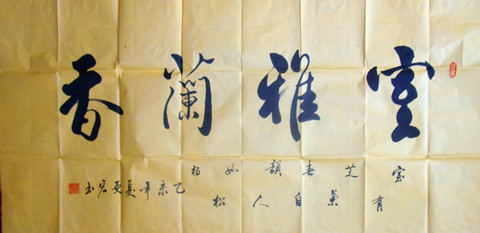 室雅蘭香
室有芝蘭春自韻人如松柏
乙未年夏